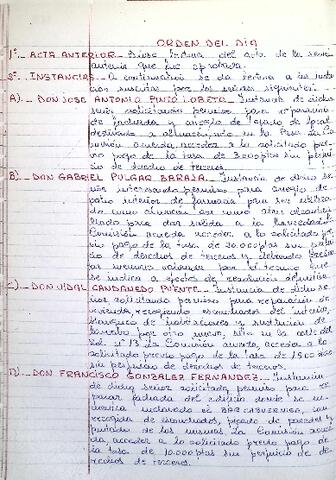 ORDEN DEL DÍA
1º.- ACTA ANTERIOR.- Dióse lectura del acta de la sesión
anterior que fue aprobada.
2º.- INSTANCIAS.- A continuación se da lectura a las instan-
cias suscritas por los señores siguientes:
A).- DON JOSE ANTONIO PINTO LOBETA.- Instancia de dicho
señor solicitando permiso para reparación
de fachada y arreglo de tejado de local
destinado a almacén
acuerda acceder a lo solicitado pre-
vio pago de la tasa de 3.000 ptas sin perjui-
cio de derecho de terceros.
B).- DON GABRIEL PULGAR BARAJA.- Instancia de dicho se-
ñor interesando permiso para arreglo de
patio interior de farmacia para ser utiliza-
do como almacén
para dar salida a la
Comisión acuerda acceder a lo solicitado pre-
vio pago de la tasa de 20.000 ptas sin perjui-
cio de derechos de terceros y debiendo presen-
tar memoria valorada por el técnico que
se indica a efectos de
C).- DON VIDAL CANDANEDO PUENTE.- Instancia de dicho se-
ñor solicitando permiso para reparación de
vivienda, recogiendo escombros del interior,
blanqueo de habitaciones y sustitución de
lavabo por otro nuevo, sito en la calle del
Sol nº 13 la Comisión acuerda, acceder a lo
solicitado previo pago de la tasa de 1500 ptas
sin perjuicio de derechos de terceros.
D).- DON FRANCISCO GONZALEZ FERNANDEZ.- Instancia
de dicho señor solicitando permiso para re-
parar fachada del edificio donde se en-
cuentra enclavado el BAR CABUERNIGA, con
recogida de escombros, picado de paredes y
pintado de los mismos. La Comisión acuer-
da, acceder a lo solicitado previo pago de
la tasa de 10.000 ptas sin perjuicio de de-
rechos de terceros.